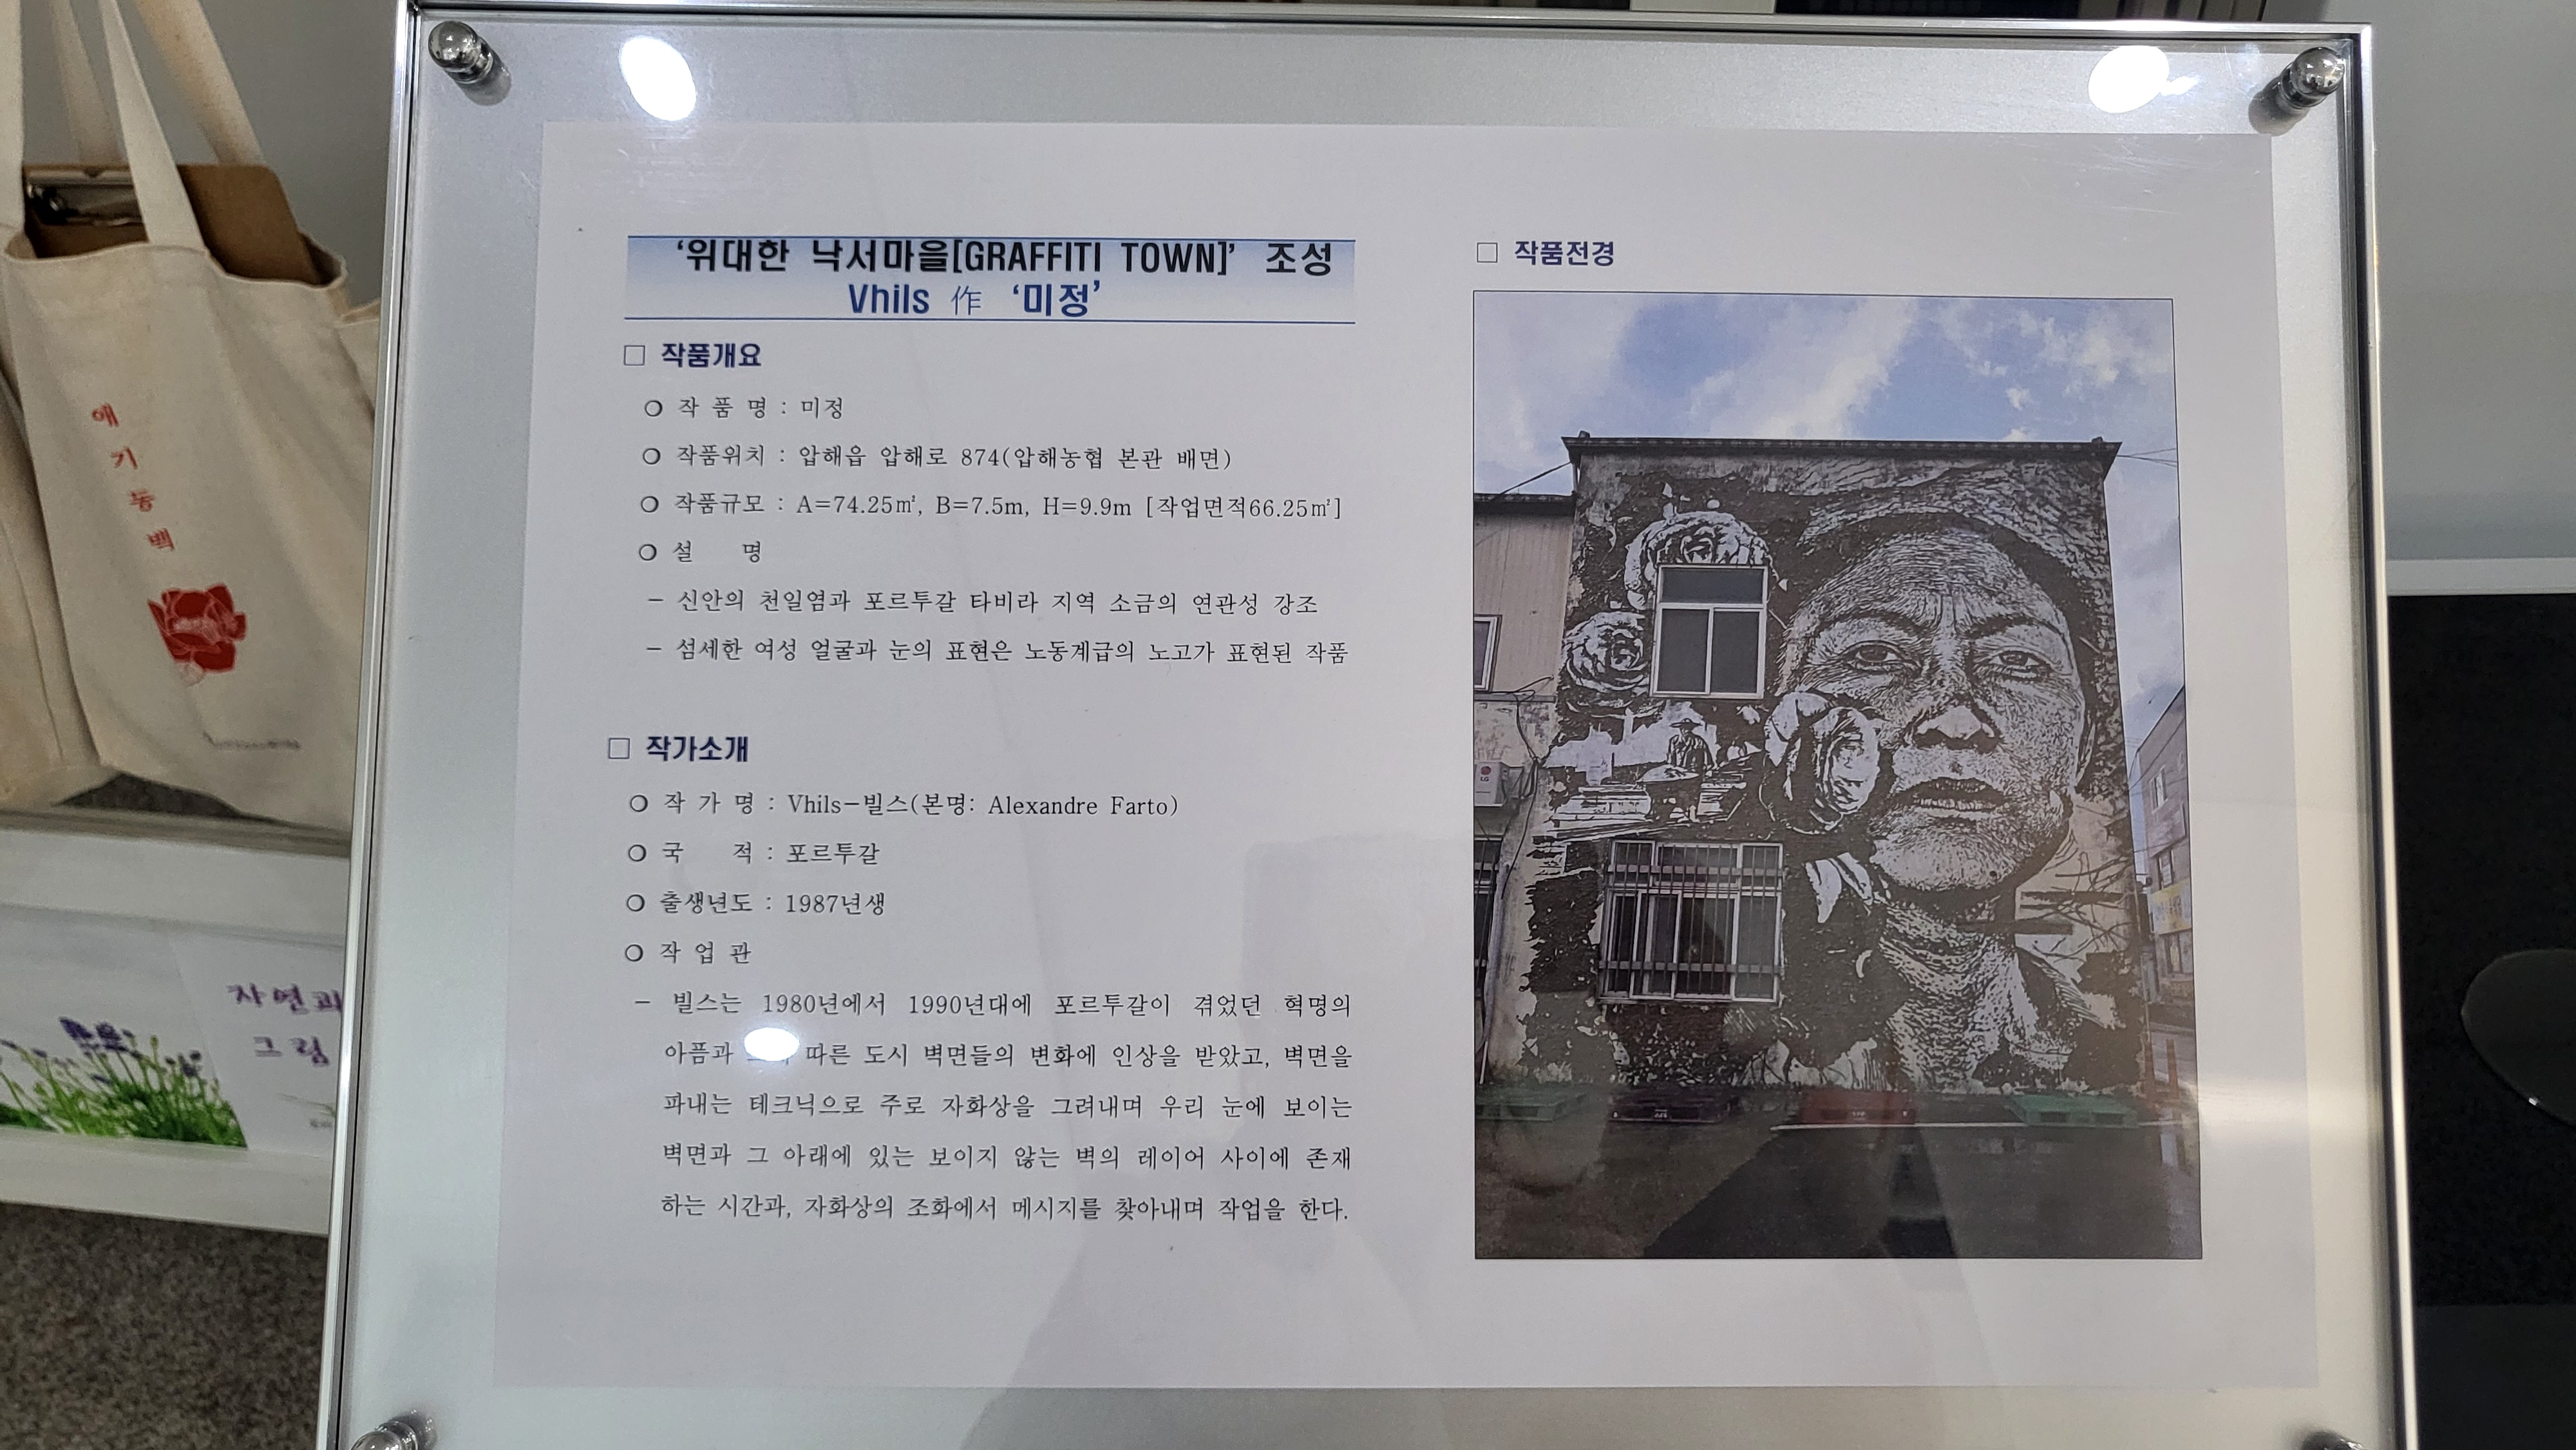 ‘위대한 낙서마을[GRAFFITI TOWN]’ 조성
Vhils 作 ‘미정’
□ 작품개요
○ 작 품 명 : 미정
○ 작품위치 : 압해읍 압해로 874(압해농협 본관 배면)
○ 작품규모 : A=74.25㎡, B=7.5m, H=9.9m [작업면적66.25㎡]
○ 설 명
- 신안의 천일염과 포르투갈 타비라 지역 소금의 연관성 강조
- 섬세한 여성 얼굴과 눈의 표현은 노동계급의 노고가 표현된 작품
□ 작가소개
○ 작 가 명 : Vhils-빌스(본명: Alexandre Farto)
○ 국 적 : 포르투갈
○ 출생년도 : 1987년생
○ 작 업 관
- 빌스는 1980년에서 1990년대에 포르투갈이 겪었던 혁명의
아픔과 따른 도시 벽면들의 변화에 인상을 받았고, 벽면을
파내는 테크닉으로 주로 자화상을 그려내며 우리 눈에 보이는
벽면과 그 아래에 있는 보이지 않는 벽의 레이어 사이에 존재
하는 시간과, 자화상의 조화에서 메시지를 찾아내며 작업을 한다.
□ 작품전경
애기동백
자연과
그림